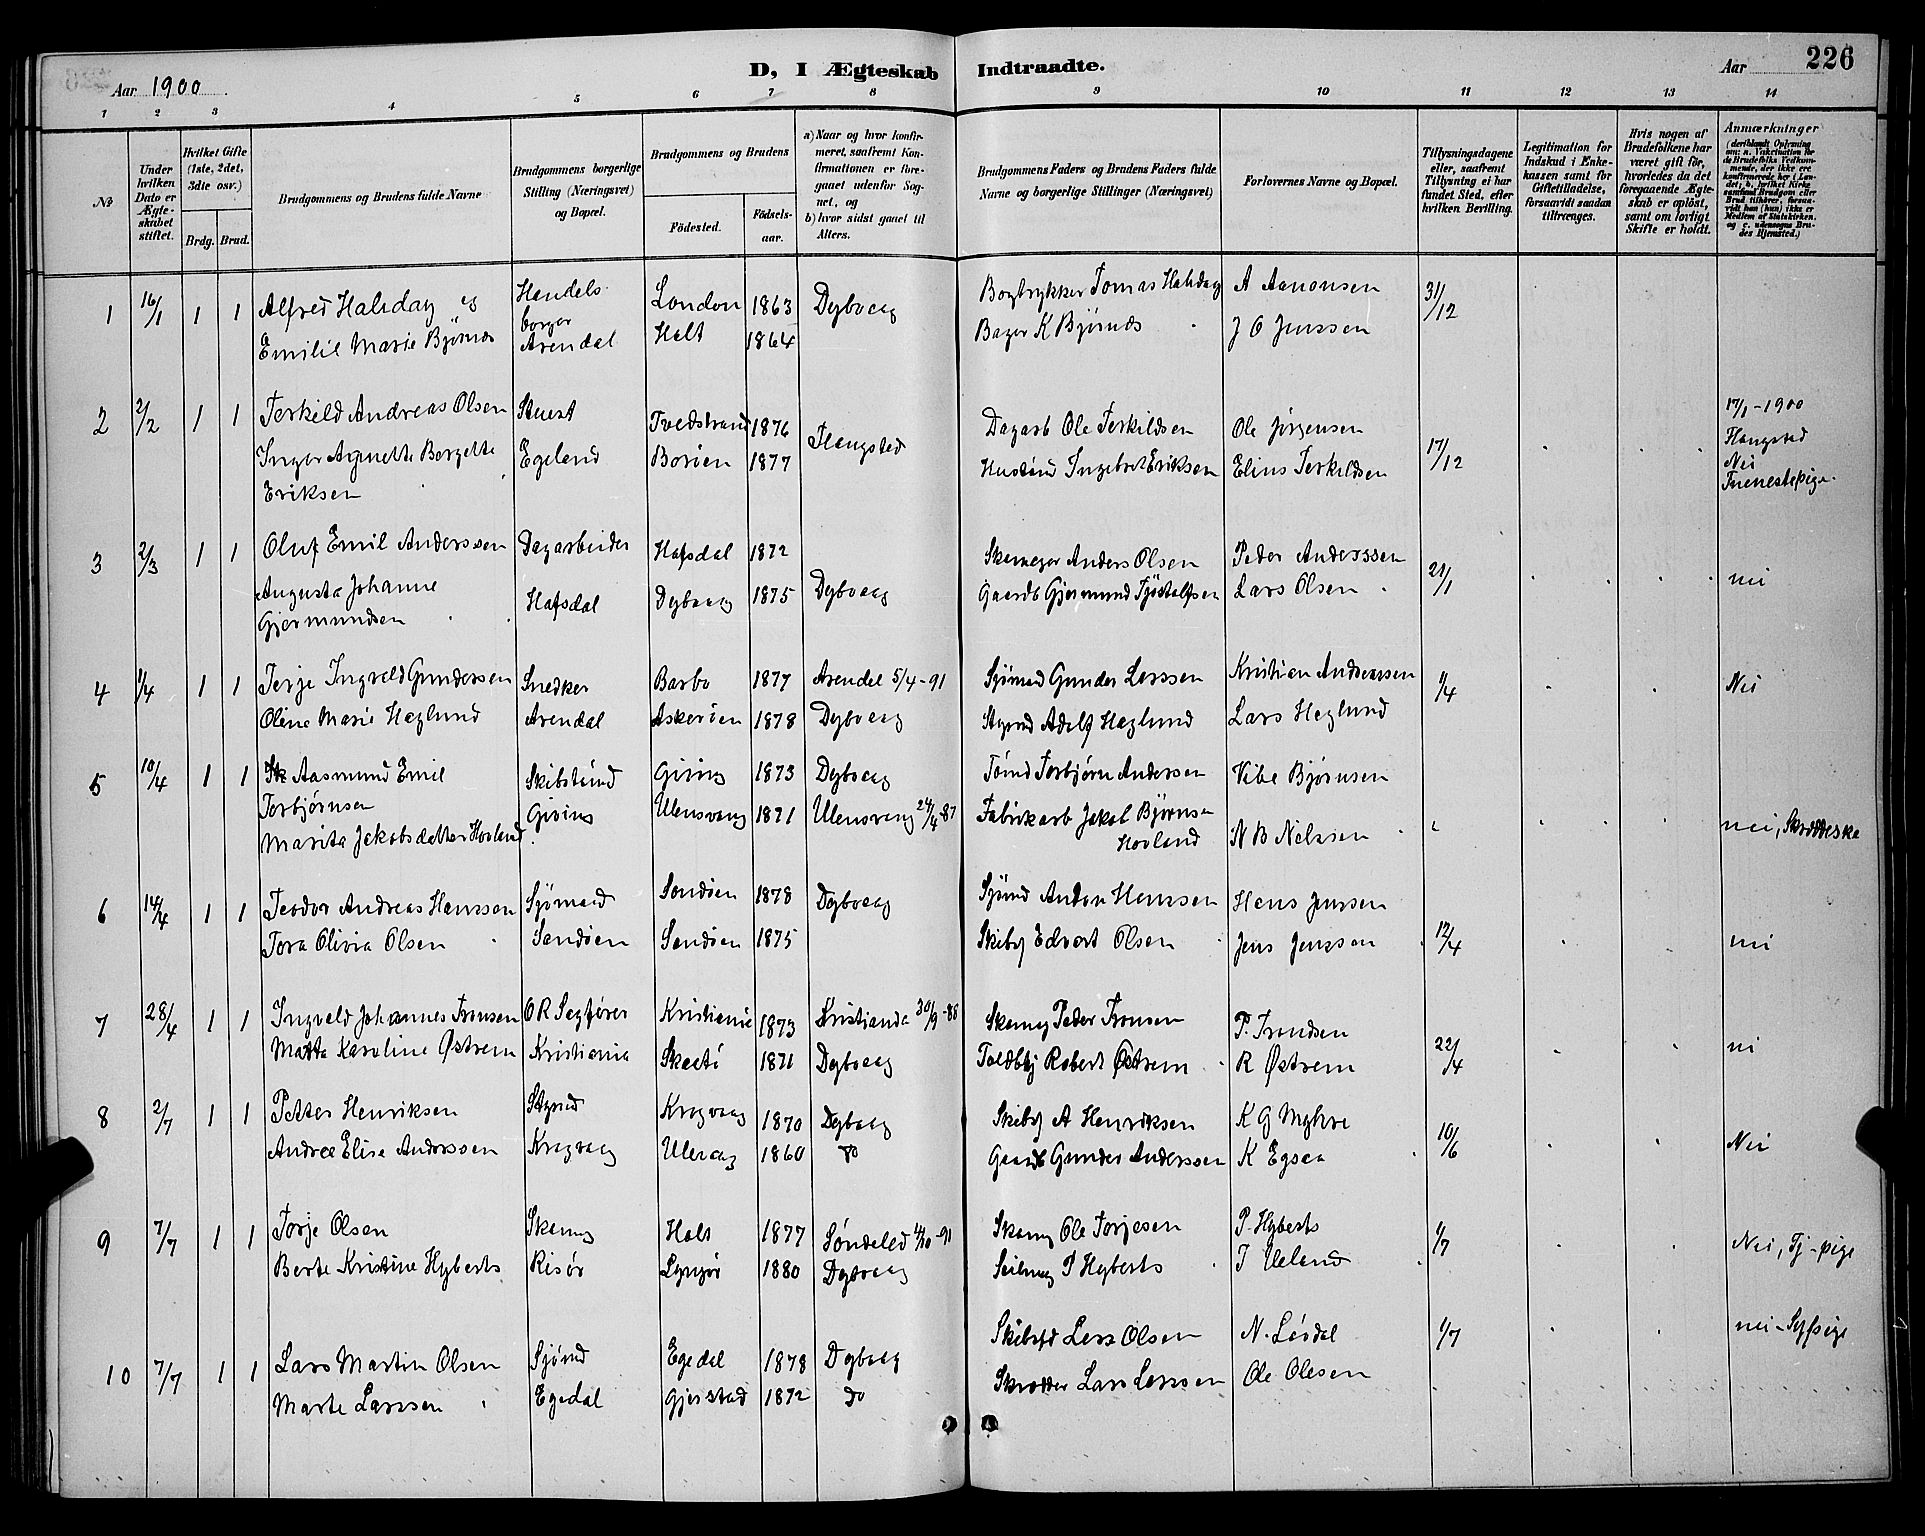 226
D, I Ægteskab Indtraadte.
Aar 1900 Aar
1 2 3 4 5 6 7 8 9 10 11 12 13 14
No
Under hvilken Dato er Ægteskabet stiftet.
Hvilket Gifte (1ste, 2det, 3dte osv.)
Brdg. Brud.
Brudgommens og Brudens fulde Navne
Brudgommens borgerlige Stilling (Næringsvei) og Bopæl.
Brudgommens og Brudens
Födested. Födselsaar.
a) Naar og hvor konfirmeret, saafremt Konfirmationen er foregaaet udenfor Sognet, og
b) hvor sidst gaaet til Alters.
Brudgommens Faders og Brudens Faders fulde Navne og borgerlige Stillinger (Næringsvei)
Forlovernes Navne og Bopæl.
Tillysningsdagene eller, saafremt Tillysning ei har fundet Sted, efter hvilken Bevilling.
Legitimation for Indskud i Enkekassen samt for Giftetilladelse, forsaavidt saadan tiltrænges.
Hvis nogen af Brudefolkene har været gift før, hvorledes da det foregaaende Ægteskab er oplöst, samt om lovligt Skifte er holdt.
Anmærkninger
1 16/1 1 1 Alfred Haliday og Handels London 1863 Dybvaag Bogtrykker Tomas Haliday A Aanonsen 31/12
borger
Emilie Marie Bjørnes Arendal Holt 1864 Bager K Bjørnes J O Jenssen
2 2/2 1 1 Terkild Andreas Olsen Stuert Tvedstrand 1876 Flangsted Dagarb Ole Terkildsen Ole Jørgensen 17/12 17/1-1900
Flangsted
Inger Agnette Borgette Egeland Borøen 1877 Husmand Ingebret Eriksen Elius Terkildsen Nei
Eriksen Tjenestepige
3 2/3 1 1 Oluf Emil Anderssen Dagarbeider Hafsdal 1872 Skomager Anders Olsen Peder Anderssen 21/1
Augusta Johanne Hafsdal Dybvaag 1875 Dybvaag Gaardb Gjermund Tjøstolfsen Lars Olsen nei
Gjermundsen
4 1/4 1 1 Terje Ingvald Gundersen Snedker Barbo 1877 Arendal 5/4-91 Sjømand Gunder Larssen Kristian Andreassen 1/4 Nei
Oline Marie Haglund Arendal Askerøen 1878 Dybvaag Styrmd Adolf Haglund Lars Haglund
5 10/4 1 1 Aasmund Emil Skibstømd Giving 1873 Dybvaag Tømd Torbjørn Andersen Vibe Bjørnsen
Torbjørnsen Giving Ulensvang 1871 Ulensvang 24/4-87 Fabrikarb Jakob Bjørnsen
Marita Jakobsdatter Hovland Hovland N B Nielssen nei, Skrædderske
6 14/4 1 1 Teodor Andreas Hanssen Sjømand Sandøen 1878 Dybvaag Sjømd Anton Hanssen Hans Jenssen
Tora Olivia Olsen Sandøen Sandøen 1875 Skibsf Edvart Olsen Jens Jenssen 12/4 nei
7 28/4 1 1 Ingvald Johannes Tronsen O R Sagfører Kristiania 1873 Kristiania 30/9-88 Skomag Peder Tronsen P. Trondsen
Marta Karoline Østrem Kristiania Skaatø 1871 Dybvaag Toldbtj Robert Østrem R Østrem 22/4 nei
8 2/7 1 1 Petter Henriksen Styrmd Krogvaag 1870 Dybvaag Skibsf A Henriksen K G Myhre
Andrea Elise Anderssen Krogvaag Ulevaag 1860 do Gaardb Gunder Anderssen K Egsaa 10/6 Nei
9 7/7 1 1 Torje Olsen Skomag Holt 1877 Søndeled 4/10-91 Skomag Ole Torjesen P. Hyberts
Berte Kristine Hyberts Risør Lyngør 1880 Dybvaag Seilmag P Hyberts T Ueland 1/7 Nei, Tj-pige
10 7/7 1 1 Lars Martin Olsen Sjømd Egedal 1878 Dybvaag Skibsfd Lars Olsen N. Løvdal 1/7 nei-Sypige
Marte Larssen Egedal Gjerstad 1872 do Skrædder Lars Larssen Ole Olesen